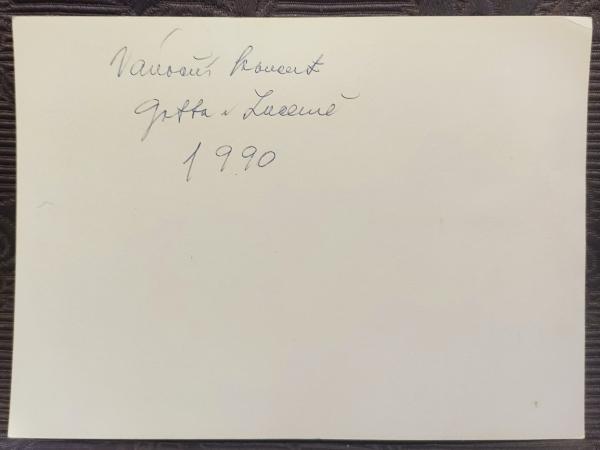 Vánoční koncert
Gotta v Lucerně
1990